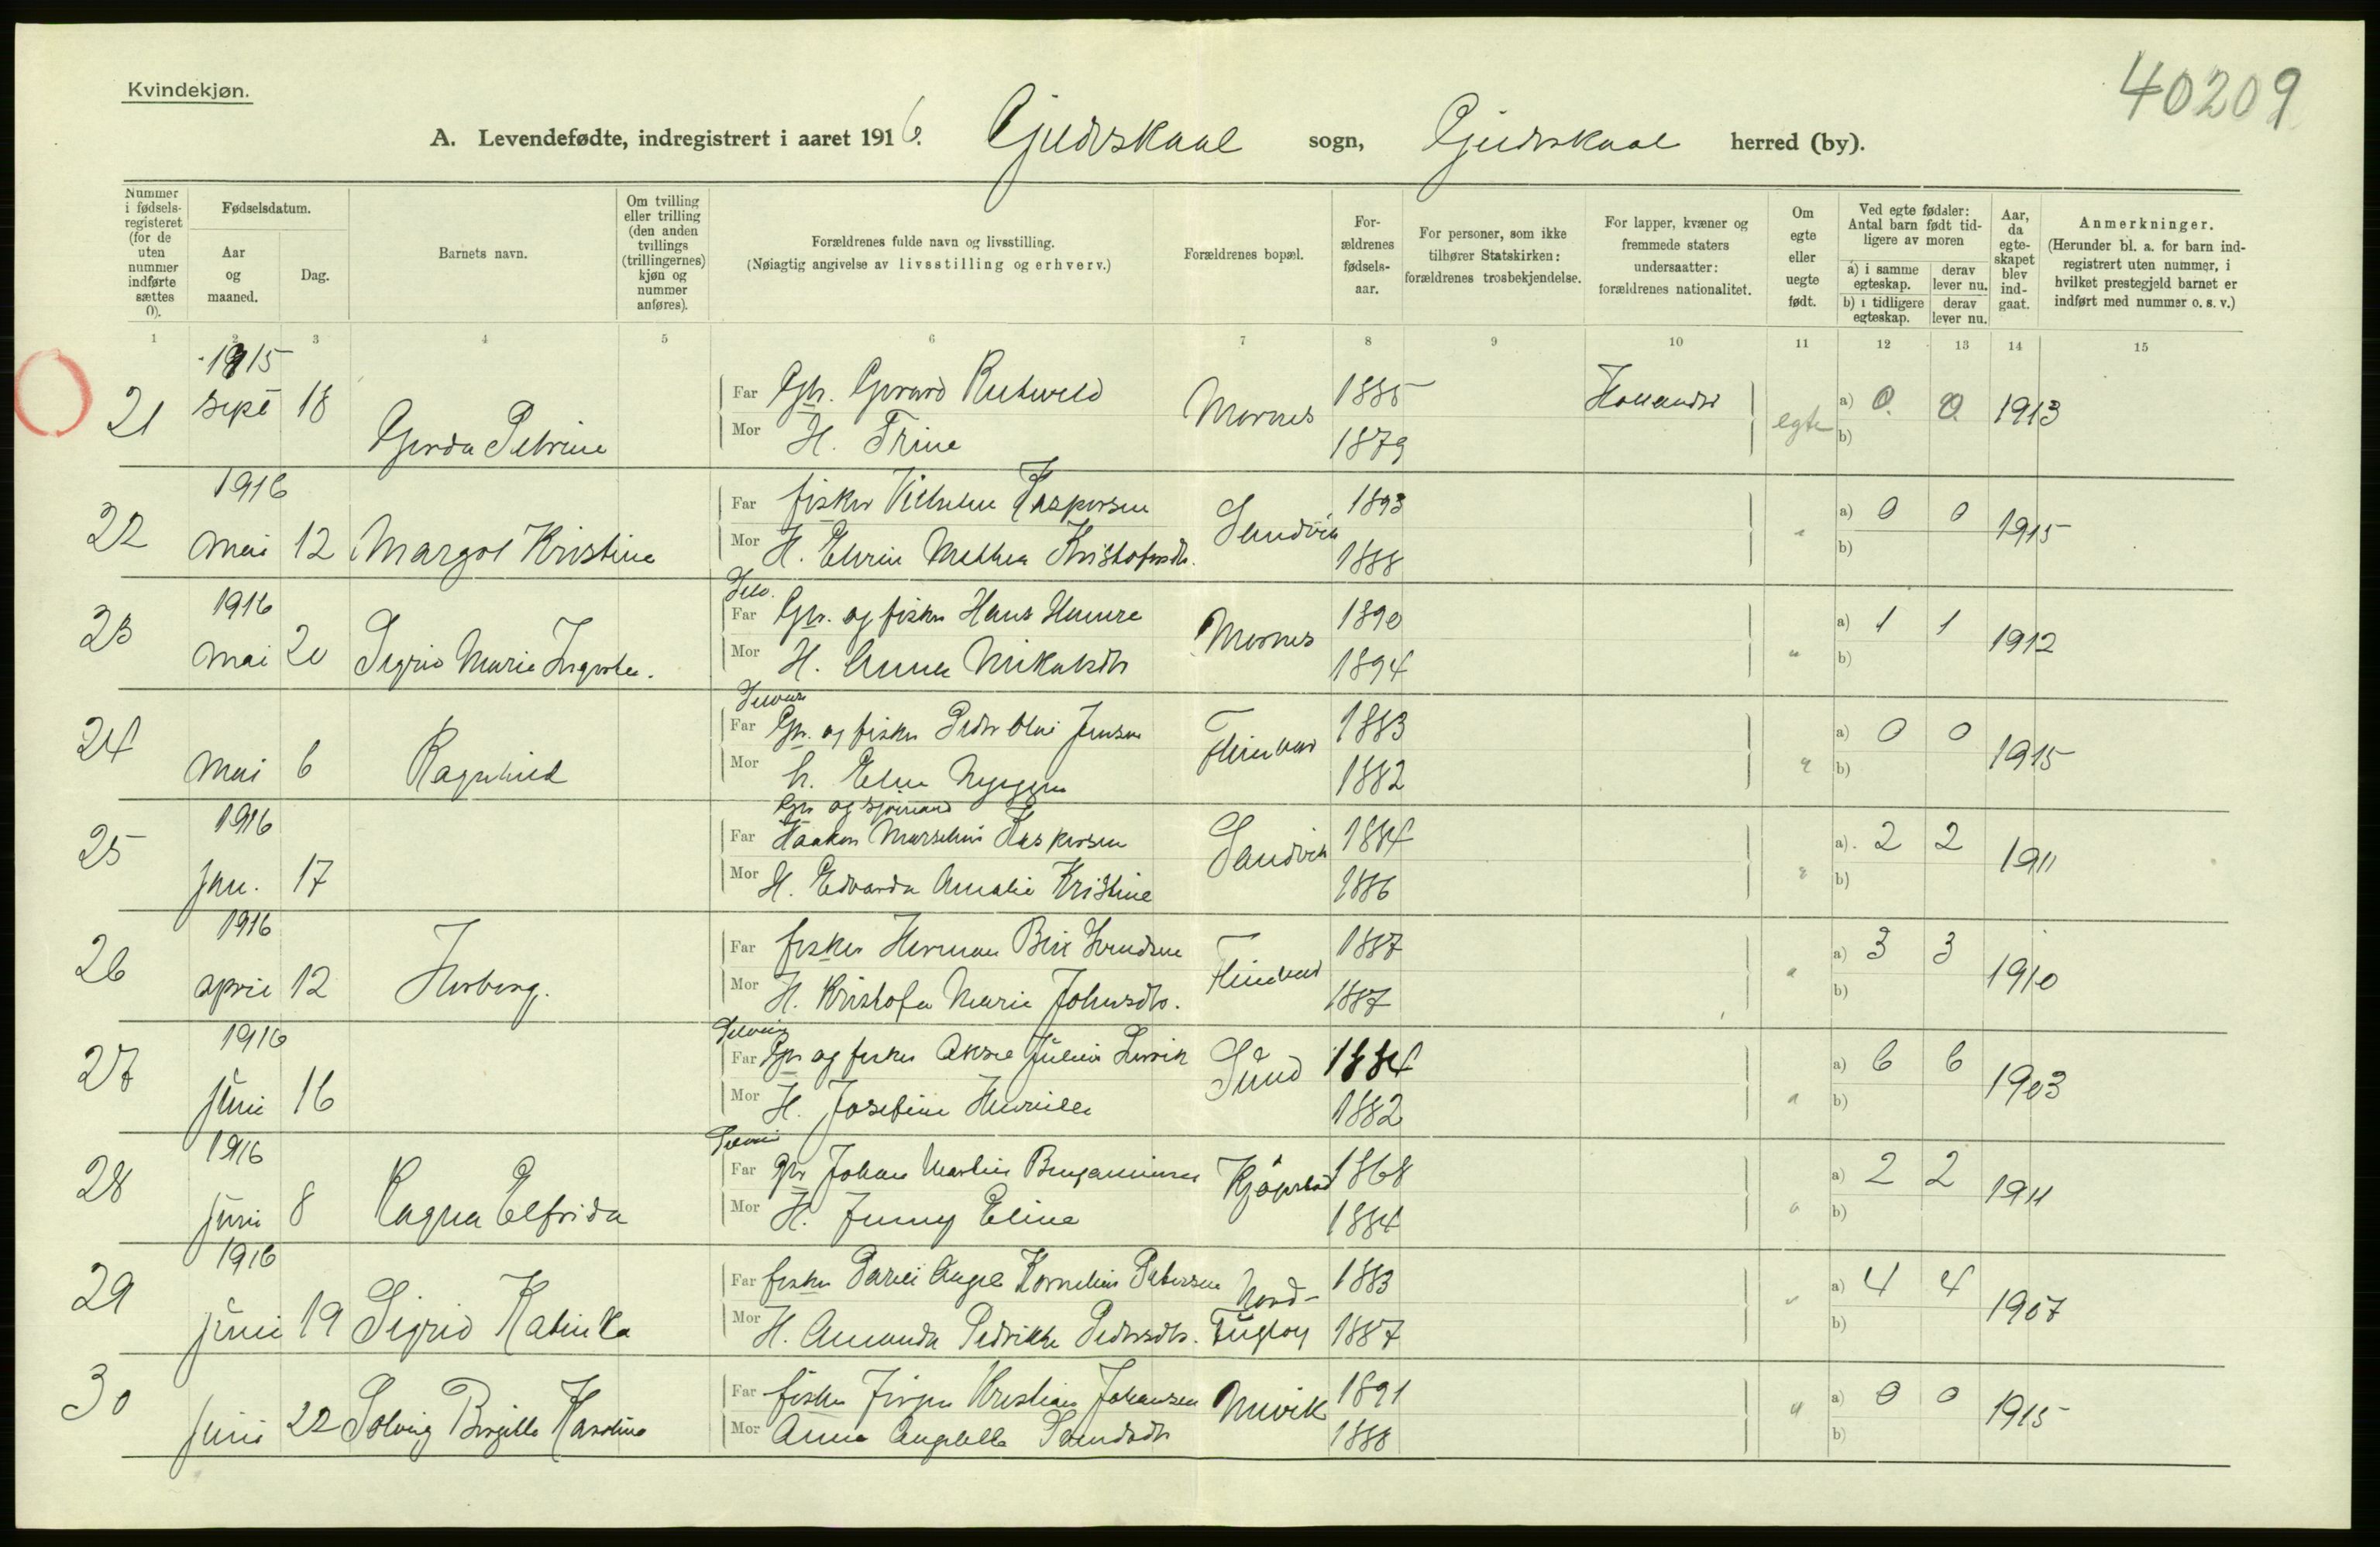 Kvindekjøn.
40209
A. Levendefødte, indregistrert i aaret 1916. Gjeldskaal sogn, Gjeldskaal herred (by).
Nummer i fødsels-registeret (for de uten nummer indførte sættes 0).
Fødselsdatum.
Aar og maaned.
Dag.
Barnets navn.
Om tvilling eller trilling (den anden tvillings (trillingernes) kjøn og nummer anføres).
Forældrenes fulde navn og livsstilling.
(Nøiagtig angivelse av livsstilling og erhverv.)
Forældrenes bopæl.
For-ældrenes fødsels-aar.
For personer, som ikke tilhører Statskirken: forældrenes trosbekjendelse.
For lapper, kvæner og fremmede staters undersaatter: forældrenes nationalitet.
Om egte eller uegte født.
Ved egte fødsler: Antal barn født tid-ligere av moren
a) i samme egteskap.
derav lever nu.
b) i tidligere egteskap.
derav lever nu.
Aar, da egte-skapet blev ind-gaat.
Anmerkninger.
(Herunder bl. a. for barn ind-registrert uten nummer, i hvilket prestegjeld barnet er indført med nummer o. s. v.)
1 2 3 4 5 6 7 8 9 10 11 12 13 14 15
1915
21 sept 18 Gerda Petrine
Far Gbr. Gerard 1885 Hollandsk
Mor H. Trine Mornes 1879
egte a) 0 0 1913
b)
1916
22 mai 12 Margot Kristine
Far fisker Vilhelm Kaspersen Sandvik 1893
Mor H. Mathea Kristofersdtr. 1888
" a) 0 0 1915
b)
1916
23 mai 20 Sigrid Marie
Selv.
Far Gbr. og fisker Hans Mornes 1890
Mor H. Anna Mikalsdtr 1894
" a) 1 1 1912
b)
24 mai 6 Ragnhild
Far Gbr. og fisker Peder Olai Jensen 1883
Mor H. 1882
" a) 0 0 1915
b)
1916
25 jan. 17
Gbr og sjømand
Far Haakon Marselius Kaspersen Sandvik 1884
Mor H. Edvarda Amalie Kristine 1886
" a) 2 2 1911
b)
1916
26 april 12 Herborg.
Far fisker Herman 1887
Mor H. Kristofa Marie Johnsdtr. 1887
" a) 3 3 1910
b)
1916
27 juni 16
Far Gbr og fisker Aksel Julius Sund 1884
Mor H. Josefine 1882
" a) 6 6 1903
b)
1916
28 juni 8 Ragna Elfrida
Far Gbr Johan Martin Benjaminsen 1868
Mor H. Jenny Eline 1884
" a) 2 2 1911
b)
1916
29 juni 19 Sigrid Katinka
Far fisker Kornelius Petersen Nord- 1883
Mor H. Amanda Pedrikke Pedersdtr. Fugløy 1887
" a) 4 4 1907
b)
30 juni 22 Solveig Karoline
Far fisker Kristian Johansen 1891
Mor Anna 1888
" a) 0 0 1915
b)